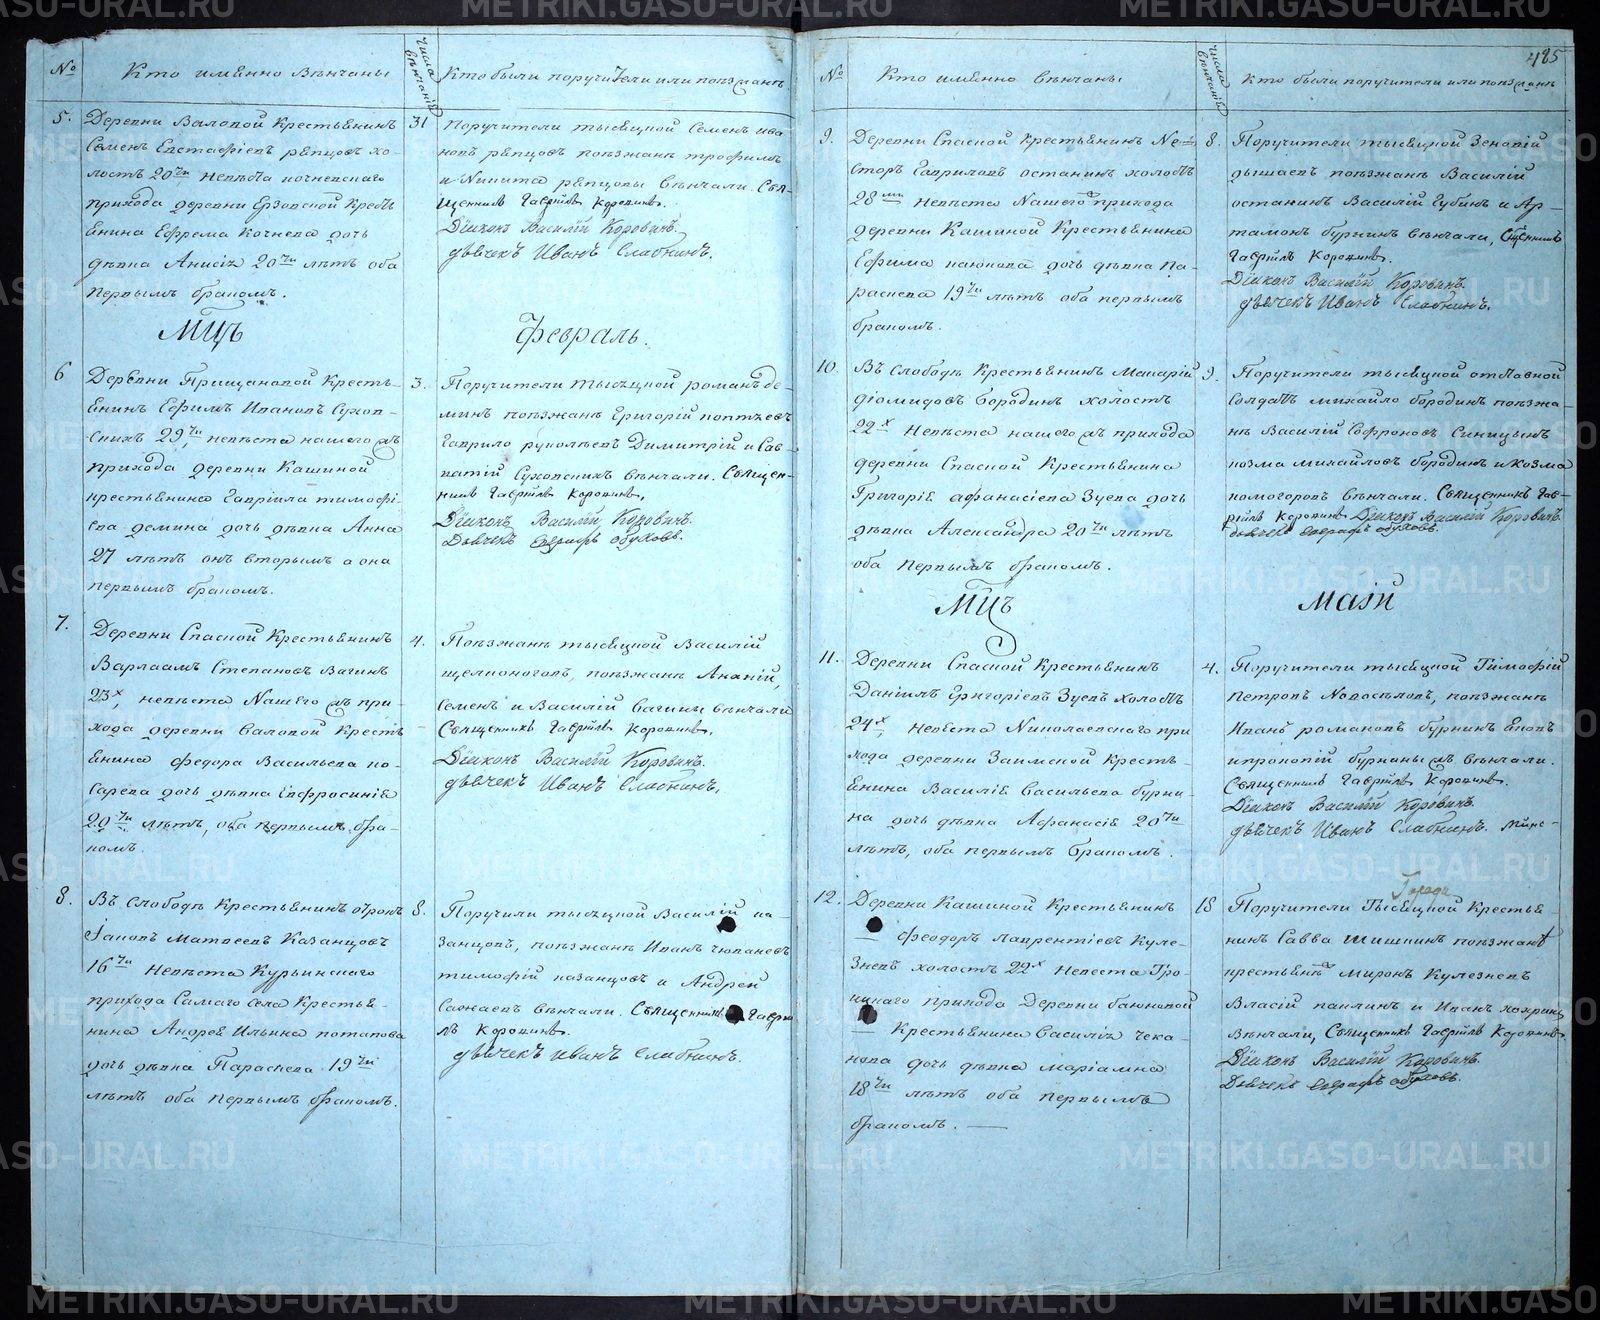 №
Кто именно Вѣнчаны
Числа вѣнчанiй
Кто были поручители или поѣзжанѣ
5.
Деревни Валовой Крестьянинъ
Семенъ Евстафіевъ рѣпцовъ хо-
лостъ 20ти Невѣста кочневскаго
прихода деревни Ерзовской Кресть
янина Ефрема Кочнева дочь
дѣвка Анисія 20ти лѣтъ оба
Первымъ бракомъ.
31
Поручители тысяцкой Семенъ ива
новъ рѣпцовъ поѣзжанѣ трофимъ
и Никита рѣпцовы вѣнчали Свя-
щенникъ Гавріилъ Коровинъ.
Діаконъ Василій Коровинъ.
дьячекъ Иванъ Слабнинъ.
Мцъ
Февраль.
6
Деревни Прищановой Кресть-
янинъ Ефимъ Ивановъ Сухов-
скихъ 29ти невѣста нашегожъ
прихода деревни Кашиной
крестьянина Гавріила тимофѣ-
ева демина дочь дѣвка Анна
27 лѣтъ онъ вторымъ а она
первымъ бракомъ.
3.
Поручители тысяцкой романъ де-
минъ поѣзжанѣ Григорій коптяевъ
Гаврило руколѣевъ Димитрій и Сав-
ватій Суховскихъ вѣнчали. Священ-
никъ Гавріилъ Коровинъ.
Діаконъ Василій Коровинъ.
Дьячекъ Евграфъ обуховъ.
7.
Деревни Спасной Крестьянинъ
Варлаамъ Степановъ Вагинъ
23х, невѣста Нашегожъ при-
хода деревни Валовой Кресть
янина федора Васильева ко-
сарева дочь дѣвка Евфросинія
20ти лѣтъ, оба первымъ бра-
комъ.
4.
Поѣзжанѣ тысяцкой Василій
щелконоговъ, поѣзжанѣ Ананій,
Семенъ и Василій Вагины вѣнчали
Священникъ Гавріилъ Коровинъ.
Діаконъ Василій Коровинъ.
дьячекъ Иванъ Слабнинъ.
8.
Въ Слободѣ Крестьянинъ отрокъ
Іаковъ Матвеевъ Казанцовъ
16ти Невѣста Курьинскаго
прихода Самаго села Крестья-
нина Андрея Ильина потапова
дочь дѣвка Параскева 19ти
лѣтъ оба первымъ бракомъ.
8.
Поручили тысяцкой Василій ка-
занцовъ, поѣзжанѣ Иванъ
тимофій казанцовъ и Андрей
Сажаевъ вѣнчали. Священникъ Гаврі
илъ Коровинъ.
дьячекъ Иванъ Слабнинъ.
485
№
Кто именно вѣнчаны
Числа вѣнчанiй
Кто были поручители или поѣзжанѣ
9.
Деревни Спасной Крестьянинъ Не-
сторъ Гавриловъ останинъ холостъ
28ми Невѣста Нашегожъ прихода
деревни Кашиной Крестьянина
Ефима паюкова дочь дѣвка Па-
раскева 19ти лѣтъ оба первымъ
бракомъ.
8.
Поручители тысяцкой Зеновій
дышаевъ поѣзжанѣ Василій
останинъ Василій Губинъ и Ар-
тамонъ бурнинъ вѣнчали, Священникъ
Гавріилъ Коровинъ.
Діаконъ Василій Коровинъ.
дьячекъ Иванъ Слабнинъ.
10.
Въ Слободѣ Крестьянинъ Макарій
діомидовъ бородинъ холостъ
22х Невѣста нашегожъ прихода
деревни Спасной Крестьянина
Григорія афанасіева Зуева дочь
дѣвка Александра 20ти лѣтъ
оба первымъ бракомъ.
9.
Поручители тысяцкой отставной
Солдатъ михайло бородинъ поѣзжа-
нѣ Василій Софроновъ Синицынъ
козма михайловъ бородинъ и козма
номогоровъ вѣнчали. Священникъ Гав-
ріилъ Коровинъ Діаконъ Василій Коровинъ.
дьячекъ Евграфъ обуховъ.
Мцъ
маій
11.
Деревни Спасной Крестьянинъ
Даніилъ Григоріевъ Зуевъ холостъ
24х, Невѣста Николаевскаго при
хода деревни Заимской Кресть-
янина Василія Васильева бурни-
на дочь дѣвка Афанасія 20ти
лѣтъ, оба первымъ бракомъ.
4.
Поручители тысяцкой Тимофій
Петровъ Новосѣловъ, поѣзжанѣ
Иванъ романовъ бурнинъ Яковъ
ипрокопій бурнаныжъ вѣнчали.
Священникъ Гавріилъ Коровинъ.
Діаконъ Василій Коровинъ.
дьячекъ Иванъ Слабнинъ.
12.
Деревни Кашиной Крестьянинъ
Феодоръ лаврентіевъ Куле-
зневъ холостъ 22х Невеста Тро-
ицкаго прихода Деревни баюновой
Крестьянина Василія Чека-
нова дочь дѣвка маріамна
18ти лѣтъ оба первымъ
бракомъ.
18
Поручители Тысяцкой Крестья-
нинъ Савва шишкинъ поѣзжанѣ
крестьянѣ миронъ Кулезневъ
Власій паклинъ и Иванъ хохринъ
Вѣнчали, Священникъ Гавріилъ Коровинъ.
Діаконъ Василій Коровинъ.
Дьячекъ Евграфъ обуховъ.